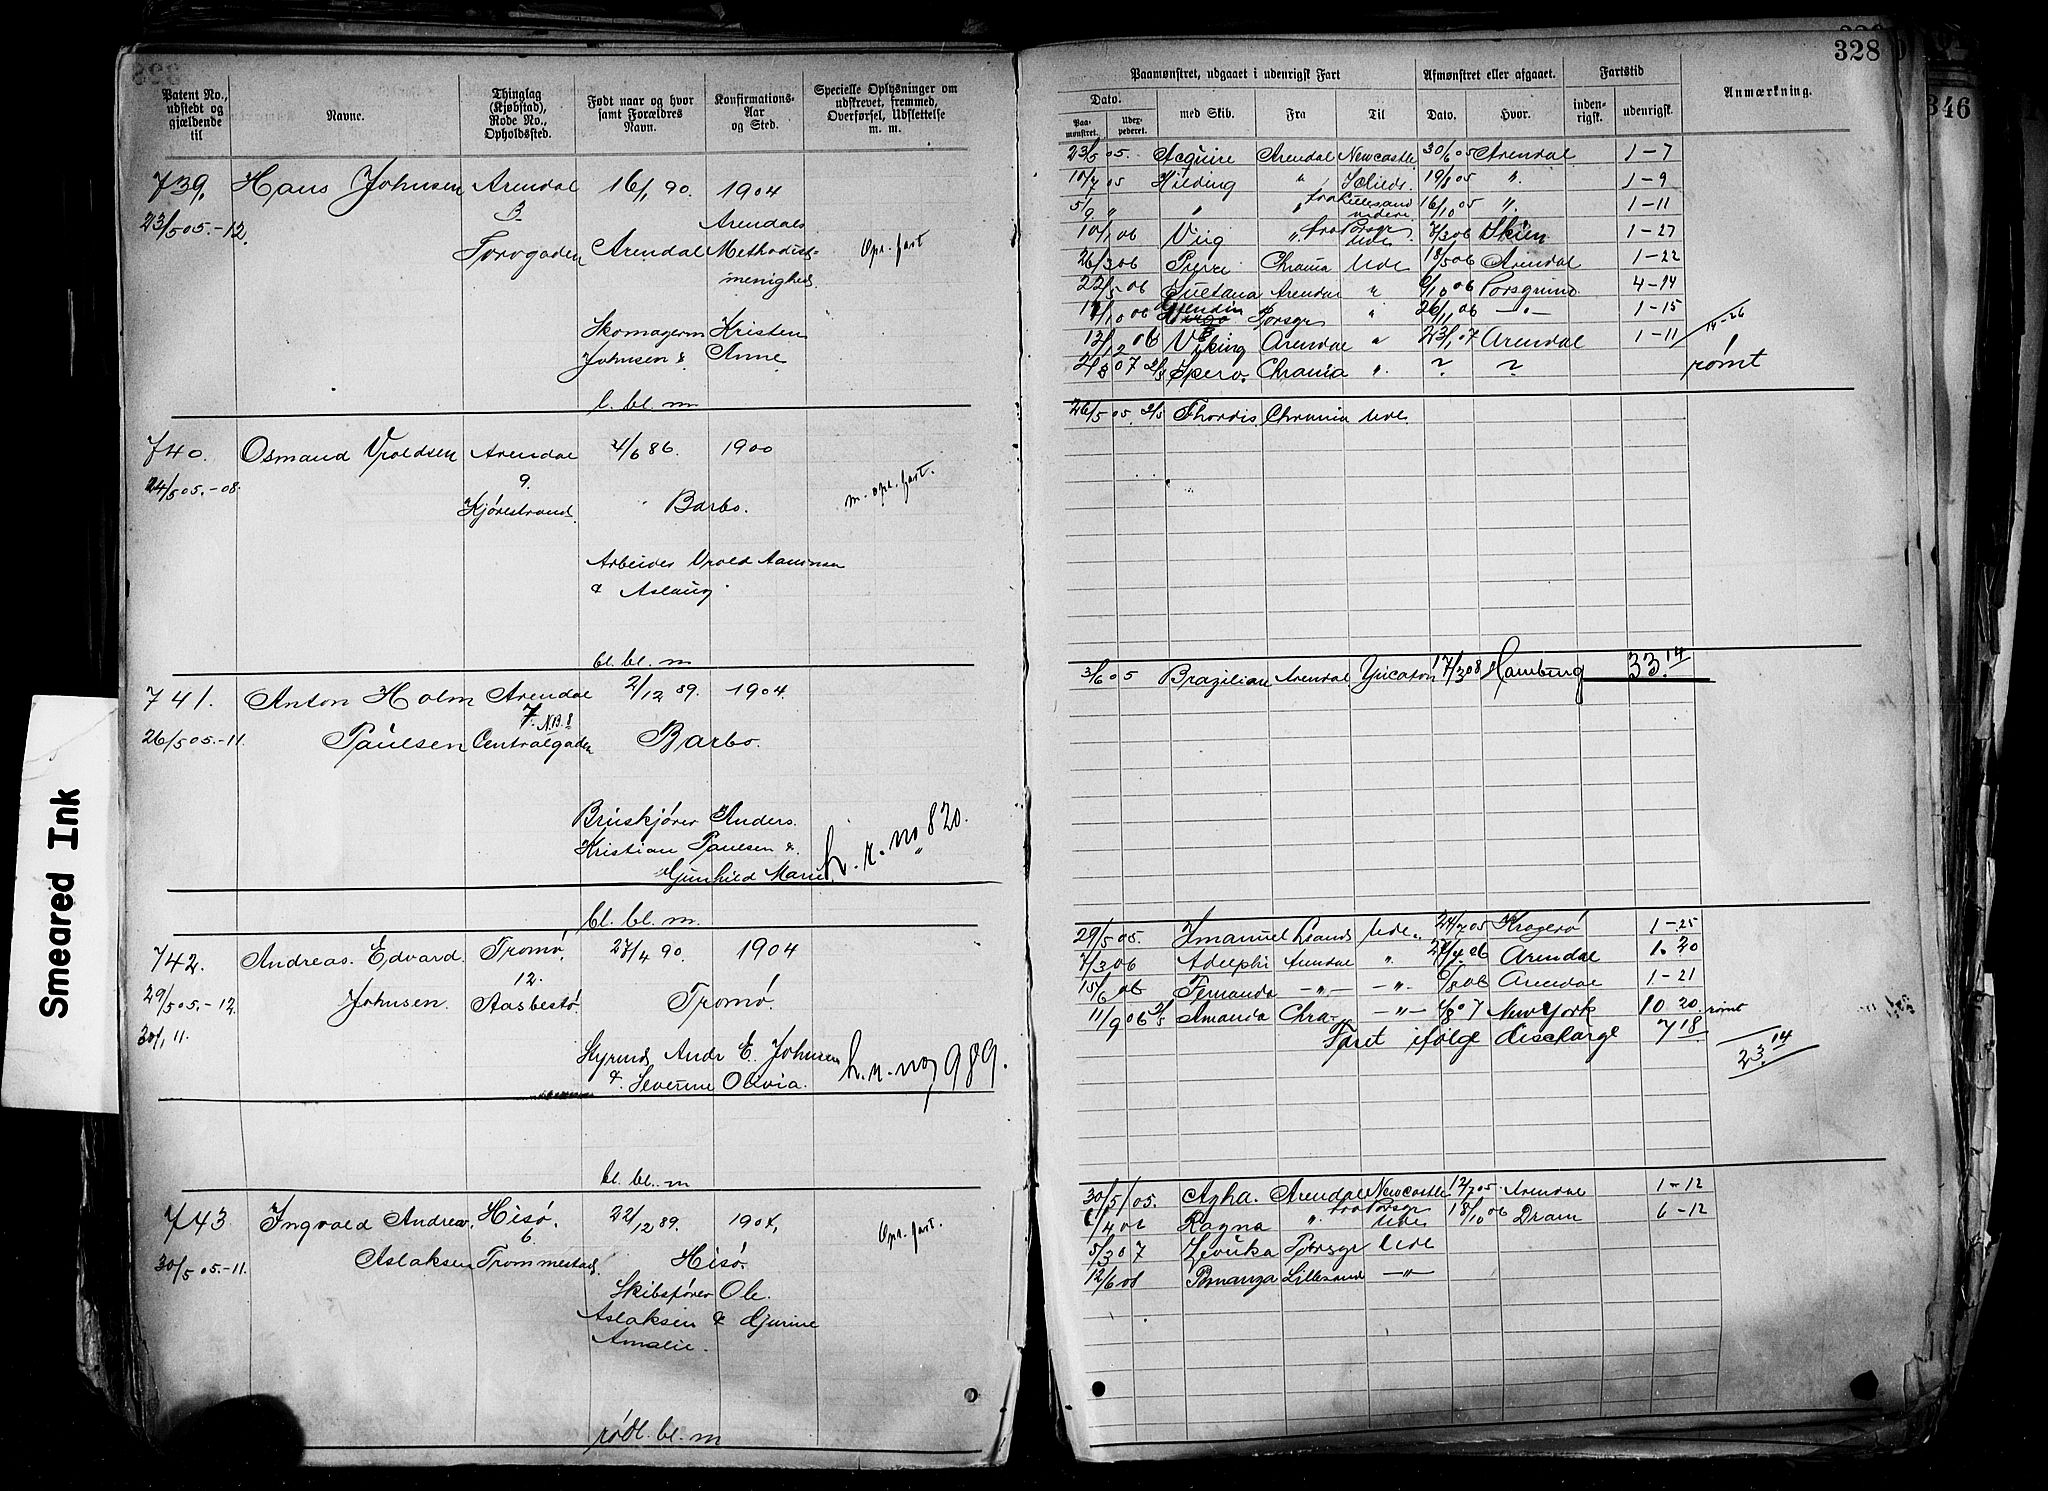 328
346
Smeared Ink
Patent No., udstedt og gjældende til
Navne.
Thinglag (Kjøbstad), Rode No., Opholdssted.
Født naar og hvor samt Forældres Navn.
Konfirmations-Aar og Sted.
Specielle Oplysninger om udskrevet, fremmed, Overførsel, Udslettelse m. m.
Paamønstret, udgaaet i udenrigst Fart
Afmønstret eller afgaaet.
Fartstid
Anmærkning.
Dato.
Paa-mønstret.
Udex-pederet.
med Skib.
Fra
Til
Dato.
Hvor.
inden-rigst.
udenrigst.
739. Hans Johnsen Arendal 16/1 90. 1904
3 Arendals
23/5 05.-12. Torvgaden Arendal Methodist- Opr. fart
menighed.
Skomagerm Kristen
Johnsen & Anne
l. bl. m
740. Osmund Vroldsen Arendal 4/6 86. 1900
9.
24/5 05.-08. Kjørestrand. Barbo. m. opr. fart.
Arbeider Vrold Aanunsen
& Aslaug
bl. bl. m
741. Anton Holm Arendal 2/12 89. 1904.
7. N.B. 8
26/5 05.-11. Paulsen Centralgaden Barbo.
Bruskjører Anders.
Kristian Paulsen &
Gunhild Marie h. r. no 820.
bl. bl. m.
742. Andreas Edvard Tromø. 27/4 90. 1904
12.
29/5 05.-12 Johnsen. Aasbestø. Tromø.
30/1 11.
Styrmd. Andr E. Johnsen
& Severine Olivia. h. r. no, 989.
bl. bl. m
743. Ingvald Andreas Hisø. 22/12 89. 1904,
6 Opr. fart.
30/5 05.-11. Aslaksen Trommestad. Hisø.
Skibsfører Ole
Aslaksen & Gurine
Amalie.
rødl. bl. m
23/5 05. Acquire Arendal Newcastle 30/6 05 Arendal 1-7
10/7 05 Hilding " Schields 19/8 05 ". 1-9
5/9 " " " fra Lillesand videre 16/10 05 ". 1-11
10/1 06 Viig ". fra Porsgr Ude 7/3 06 Skien 1-27
26/3 06 Chrania Ude 18/5 06 Arendal 1-22
22/5 06 Suetana Arendal " 9/10 06 Porsgrund 4-14
17/10 06 Porsgr " 26/11 06 -"- 1-15
12/12 06 Viking Arendal " 23/1 07 Arendal 1-11
14-26
2/3 07 2/3 Spero. Chrania ". ? ? rømt
26/5 05. 2/5 Thordis Chrania Ude
3/6 05 Brazilian Arendal Yucaton 17/3 08 Hamburg 33.14
29/5 05. Imanuel Lsands Ude. 24/7 05 Kragerø 1-25
7/3 06 Adelphi Arendal " 27/4 06 Arendal 1.20
15/6 06 Fernanda -"- -"- 6/8 06 Arendal 1-21
11/9 06 2/5 Amanda Chra- -"- 4/8 07 New York 10 20 rømt
Faret ifølge discharge 7 18
23.14
30/5/05. Agha. Arendal Newcastle 12/7 05. Arendal 1-12
6/4 06 Ragna ". fra Porsgr Ude 18/10 06 Dram 6-12
5/3 07 Zevuka Porsgr Ude
12/6 08 Bonanza Lillesand -"-